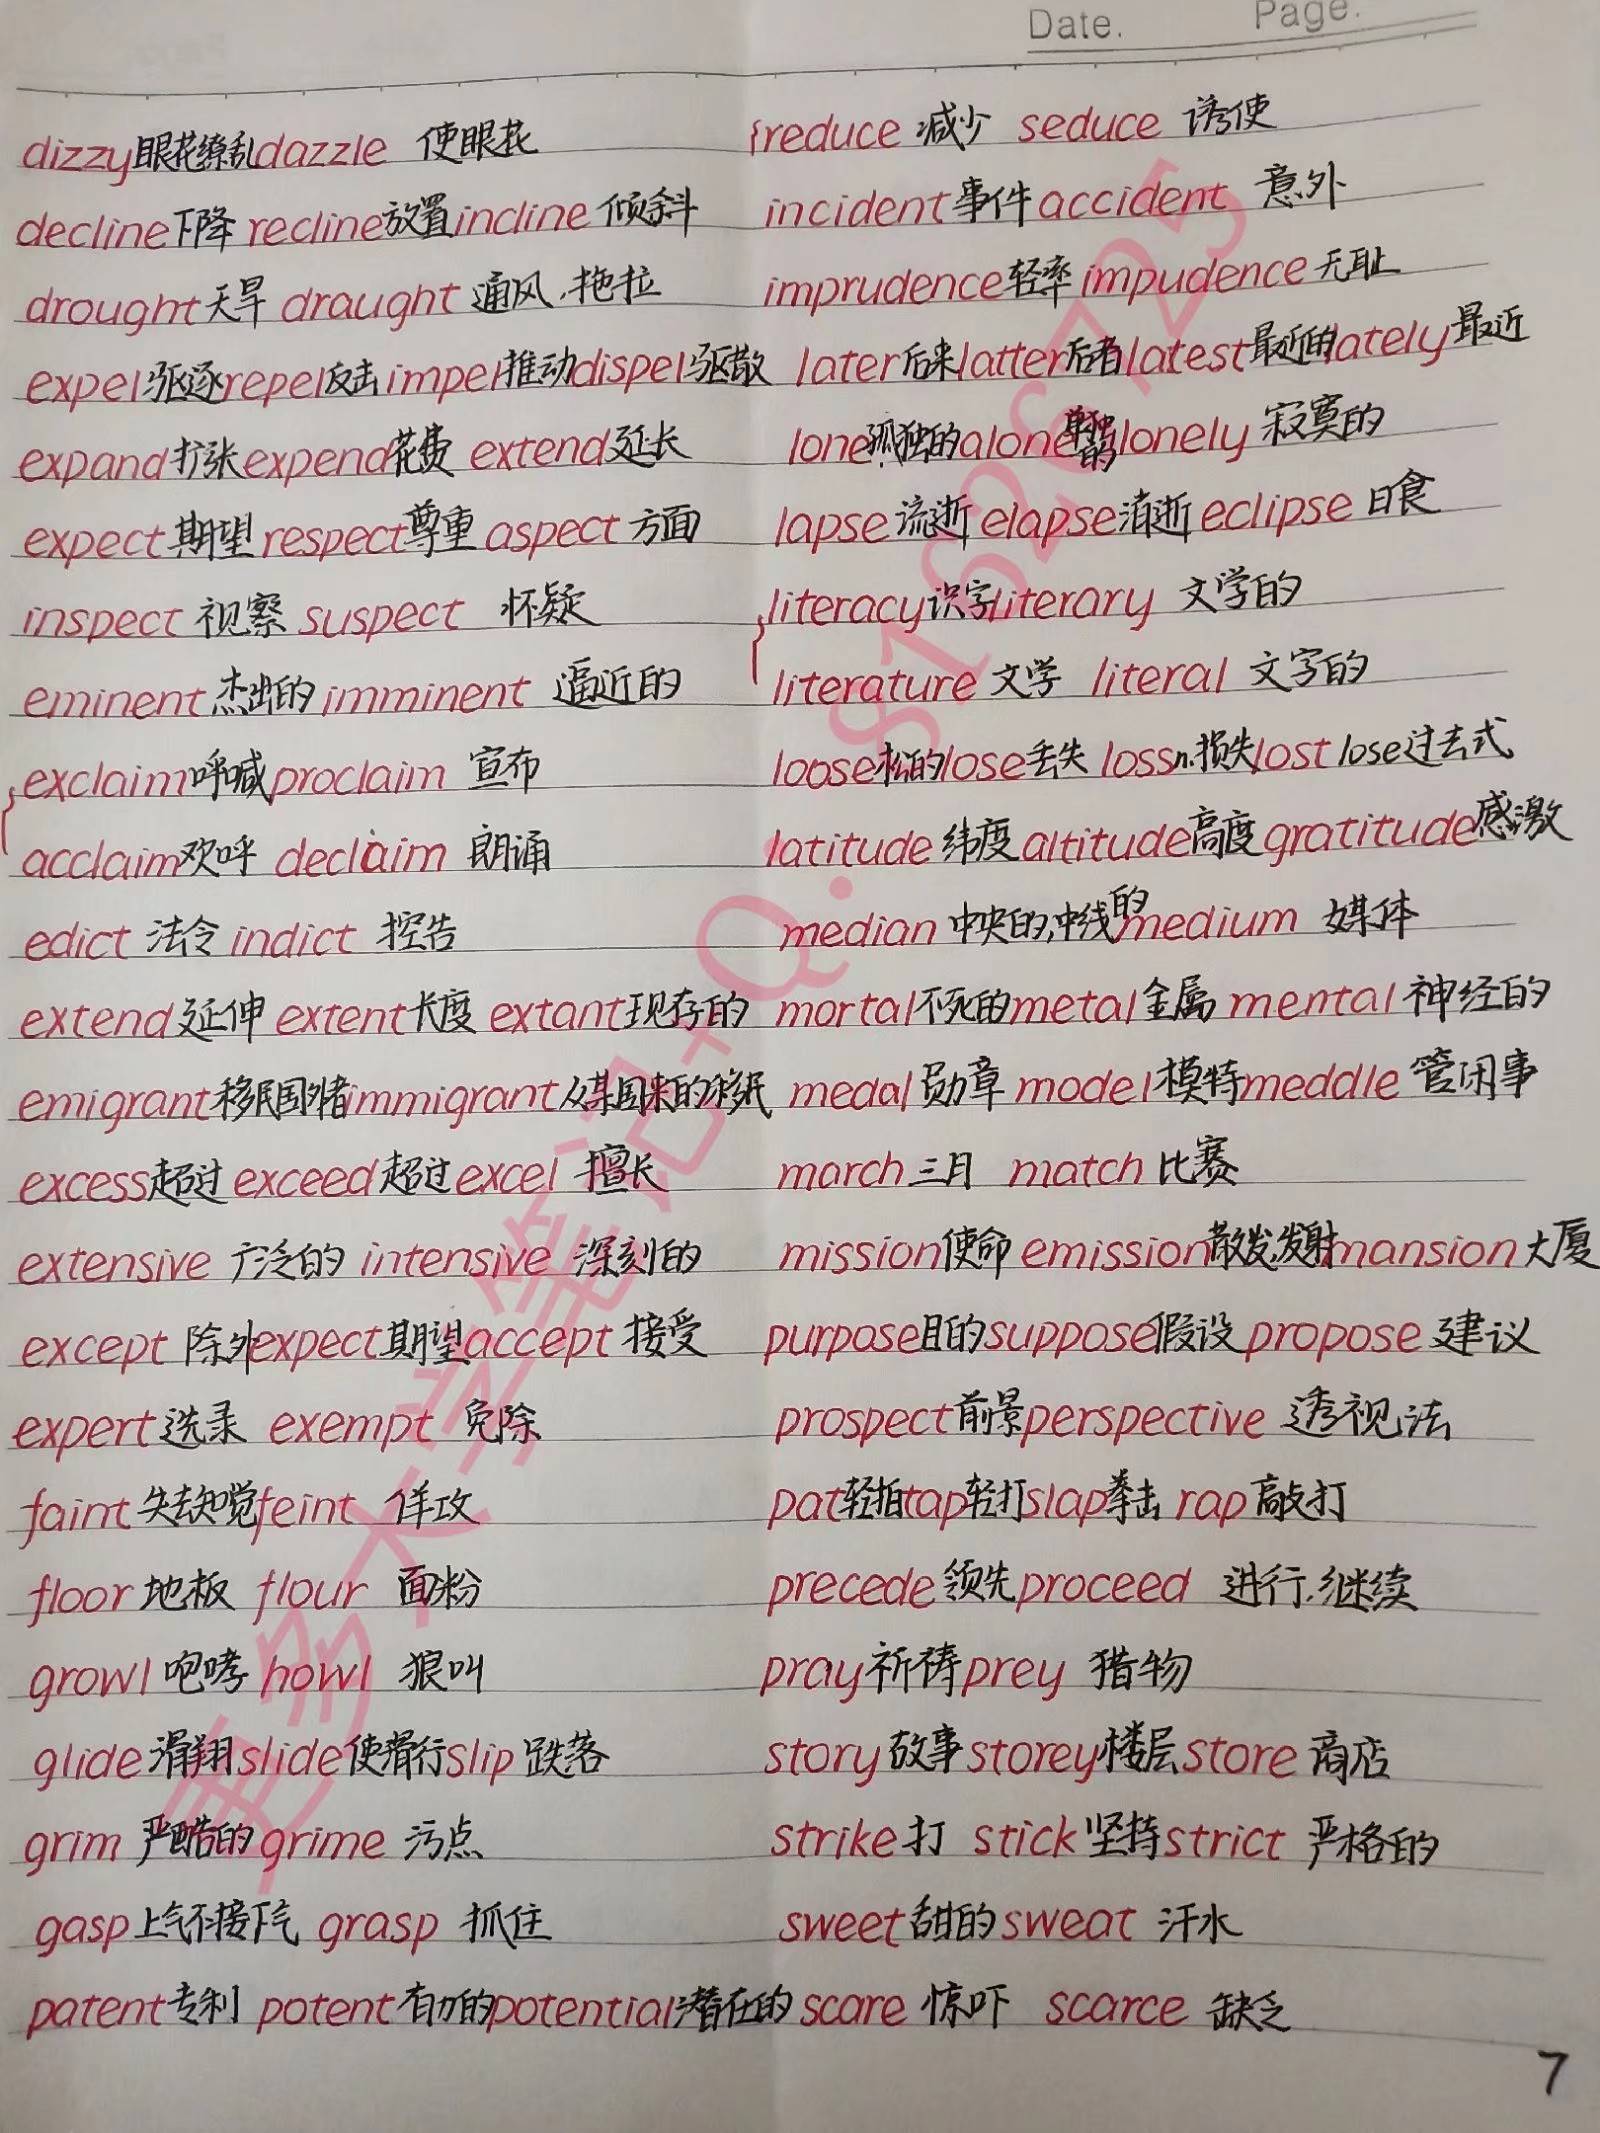 Date. Page.
dizzy眼花缭乱dazzle 使眼花
decline下降 recline放置incline倾斜
drought天旱 draught 通风.拖拉
expel驱逐repel反击impel推动dispel驱散
expand扩张expend花费 extend延长
expect期望 respect尊重 aspect 方面
inspect 视察 suspect 怀疑
eminent杰出的imminent 逼近的
exclaim呼喊proclaim 宣布
acclaim欢呼 declaim 朗诵
edict 法令 indict 控告
extend延伸 extent长度 extant现存的
emigrant移民国外者immigrant从某国来的移民
excess超过 exceed超过excel 擅长
extensive 广泛的 intensive 深刻的
except 除外expect期望accept 接受
expert选录 exempt 免除
faint失去知觉feint 佯攻
floor地板 flour 面粉
growl咆哮 howl 狼叫
glide滑翔slide使滑行slip跌落
grim 严酷的grime 污点
gasp上气不接下气 grasp 抓住
patent专利 potent有力的potential潜在的
reduce 减少 seduce 诱使
incident事件accident 意外
imprudence轻率impudence无耻
later后来latter后者latest最近的lately最近
lone孤独的alone单独的lonely 寂寞的
lapse流逝elapse消逝eclipse 日食
literacy识字literary 文学的
literature 文学 literal 文字的
loose松的lose丢失 loss n.损失lost lose过去式
latitude 纬度altitude高度gratitude感激
median 中央的,中线的medium 媒体
mortal不死的metal金属 mental 神经的
medal勋章 model模特meddle 管闲事
march三月 match比赛
mission使命 emission散发,发射mansion大厦
purpose目的suppose假设 propose 建议
prospect前景perspective 透视法
pat轻拍tap轻打slap拳击 rap敲打
precede领先proceed 进行.继续
pray祈祷prey 猎物
story故事storey楼层store 商店
strike打 stick坚持strict 严格的
sweet甜的sweat 汗水
scare 惊吓 scarce 缺乏
7
更多大学笔记+Q.81626725